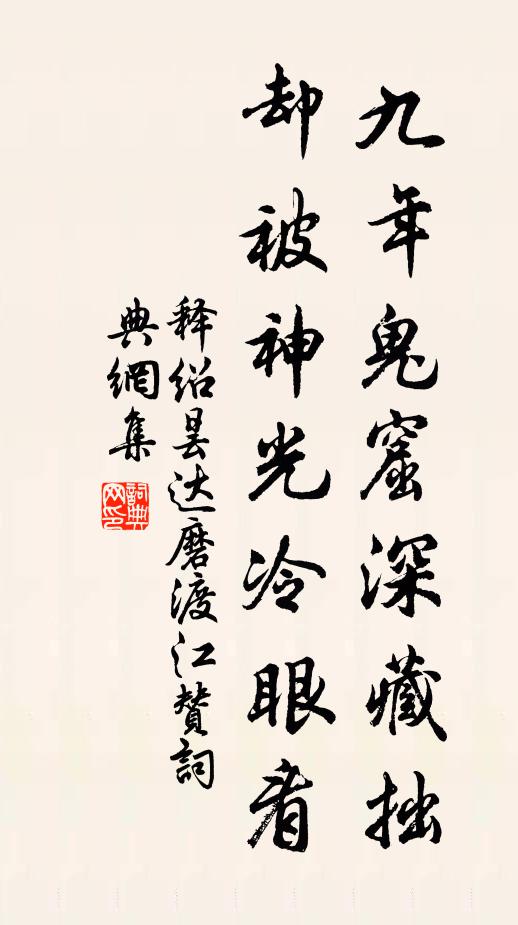 九年鬼窟深藏拙
却被神光冷眼看
释绍昙达磨渡江赞詞
典網集
詞典网印